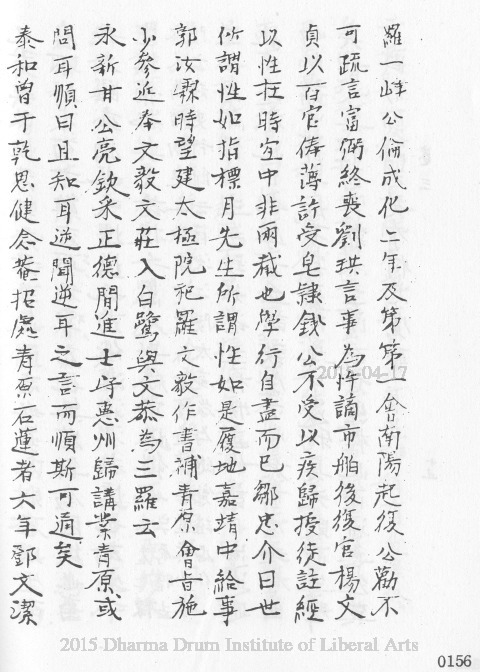 羅一峰公倫成化二年及第第一會南陽起復公勸不
可疏言富弼終喪劉珙言事為忤謫市舶後復官楊文
貞以百官俸薄許受皂隸錢公不受以疾歸授徒註經
以性在時宜中非兩截也學行自盡而已鄒忠介曰世
所謂性如指標月先生所謂性如是履地嘉靖中給事
郭汝霖時望建太極院祀羅文毅作書補青原會旨施
少參近奉文毅文莊入白鷺與文恭為三羅云
永新甘公亮欽采正德間進士守惠州歸講業青原或
問耳順曰且知耳逆聞逆耳之言而順斯可適矣
泰和曾于乾思健念菴招處青原石蓮者六年鄧文潔
2015-04-17
2015 Dharma Drum Institute of Liberal Arts
0156